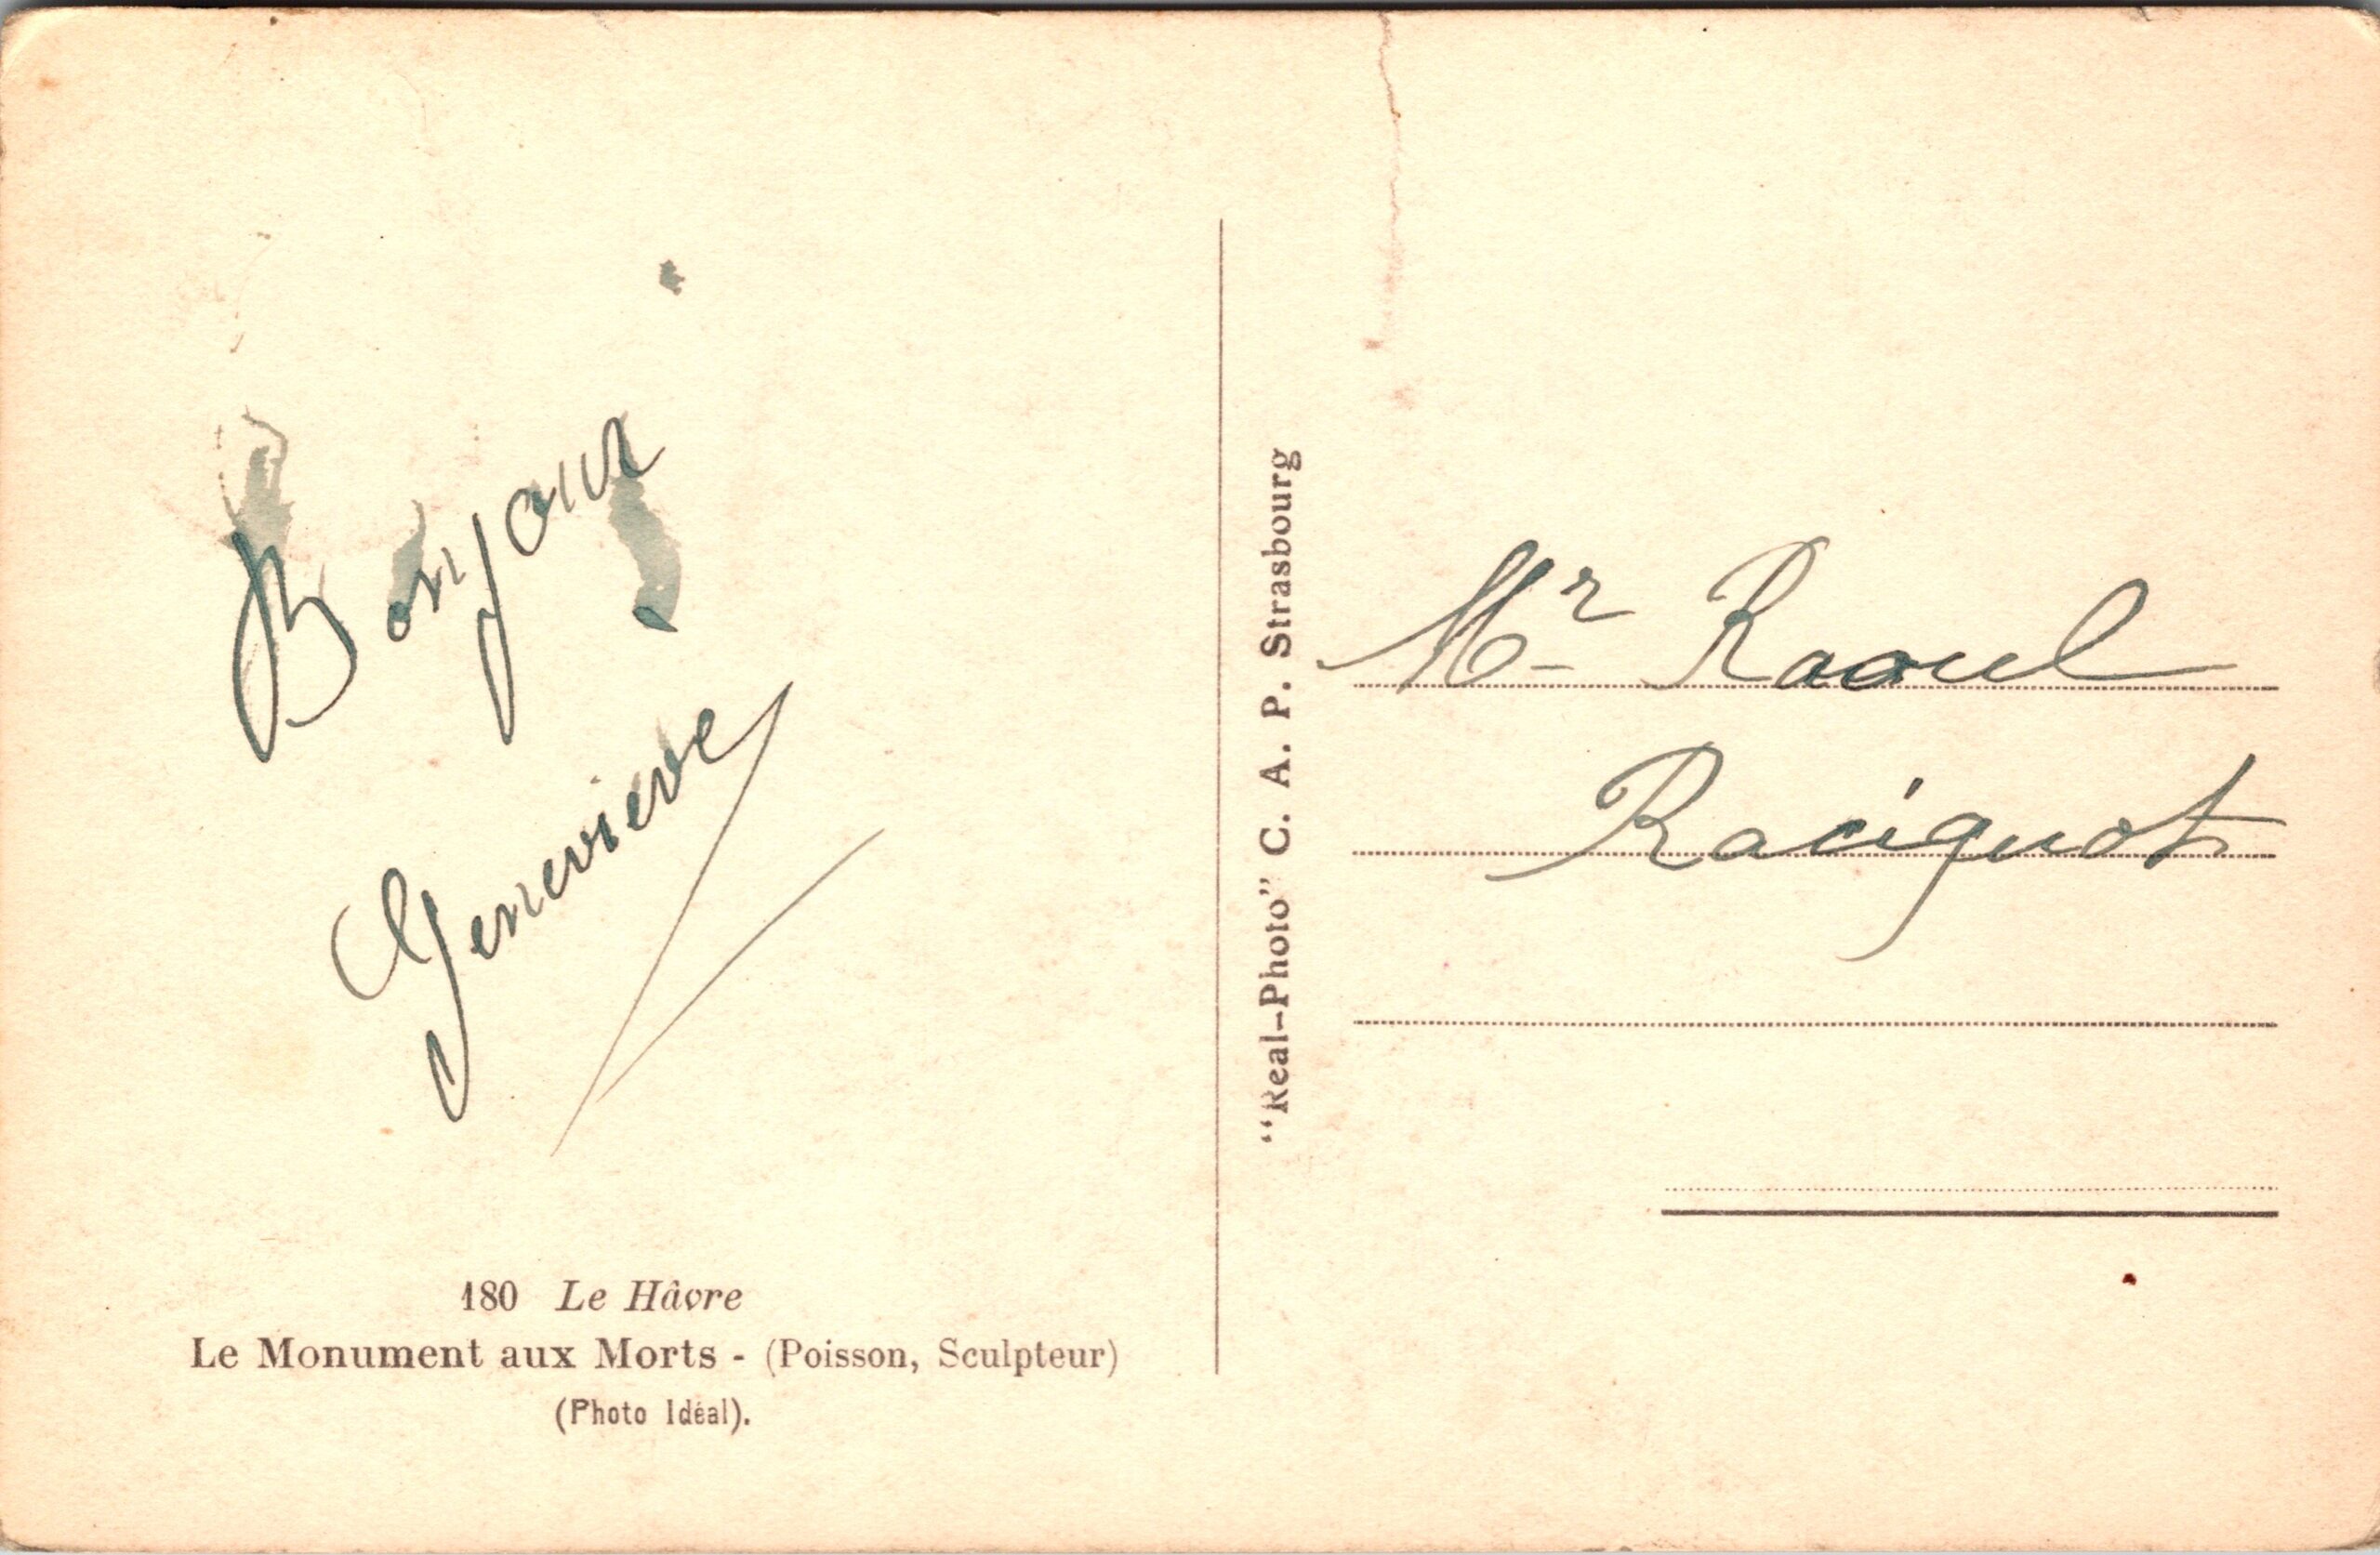 Bonjour
Genevieve
180 Le Hâvre
Le Monument aux Morts - (Poisson, Sculpteur)
(Photo Idéal).
"Real-Photo" C. A. P. Strasbourg
Mr Raoul
Raciquot